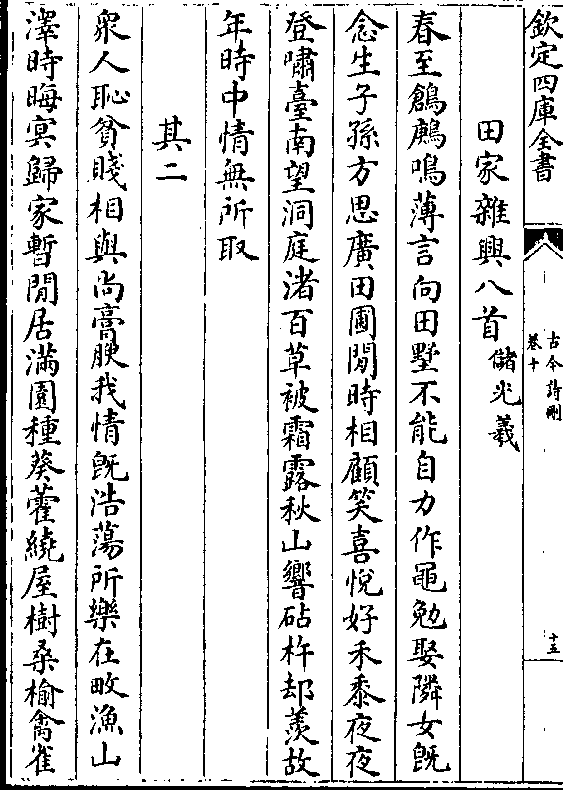 欽定四庫全書
古今詩刪
卷十
十五
田家雜興八首 儲光羲
春至鶬鶊鳴薄言向田墅不能自力作黽勉娶隣女旣
念生子孫方思廣田圃閒時相顧笑喜悅好禾黍夜夜
登嘯臺南望洞庭渚百草被霜露秋山響砧杵却羨故
年時中情無所取
其二
衆人恥貧賤相與尚膏腴我情旣浩蕩所樂在畋漁山
澤時晦冥歸家暫閒居滿園種葵藿繞屋樹桑榆禽雀